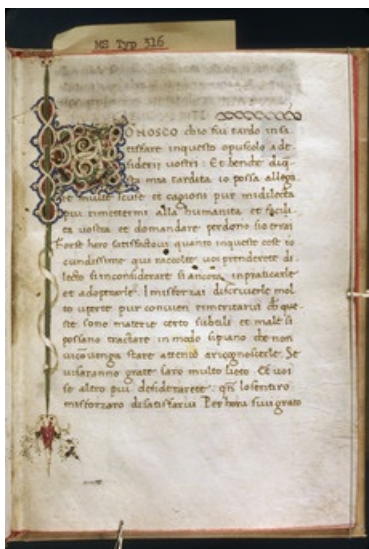 MS Typ 316
ONOSCO chio fui tardo in sa
tisfare inquesto opuscolo ade
siderii vostri : Et benche diq
sta mia tardita io possa allega
et multe scuse et cagioni pur midilecta
pui rimettermi alla humanita et facili
ta vostra et domandare perdono sio errai
forse hero satisfactoui quanto inqueste cose io
cundissime qui raccolte uoi prenderete di
lecto si inconsiderate si ancora inpraticarle
et adoperarle. I misforzai discriuerle mol
to aperte pur conuien rimeritarui che que
ste sono materie certo subtili et male si
possano tractare in modo si piano che non
ui conuenga stare attento aricognoscerle. Se
ui saranno grate saro multo lieto. Et uoi
se altro piu desiderarete. losentiro
misforzaro disatisfarui Per hora siui grato